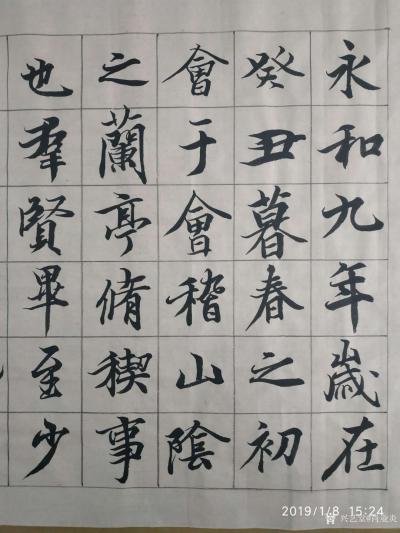 永和九年歲在
癸丑暮春之初
會于會稽山陰
之蘭亭脩稧事
也羣賢畢至少
2019/1/8 15:24